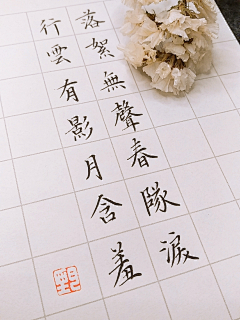 落絮無聲春隊淚
行雲有影月含羞